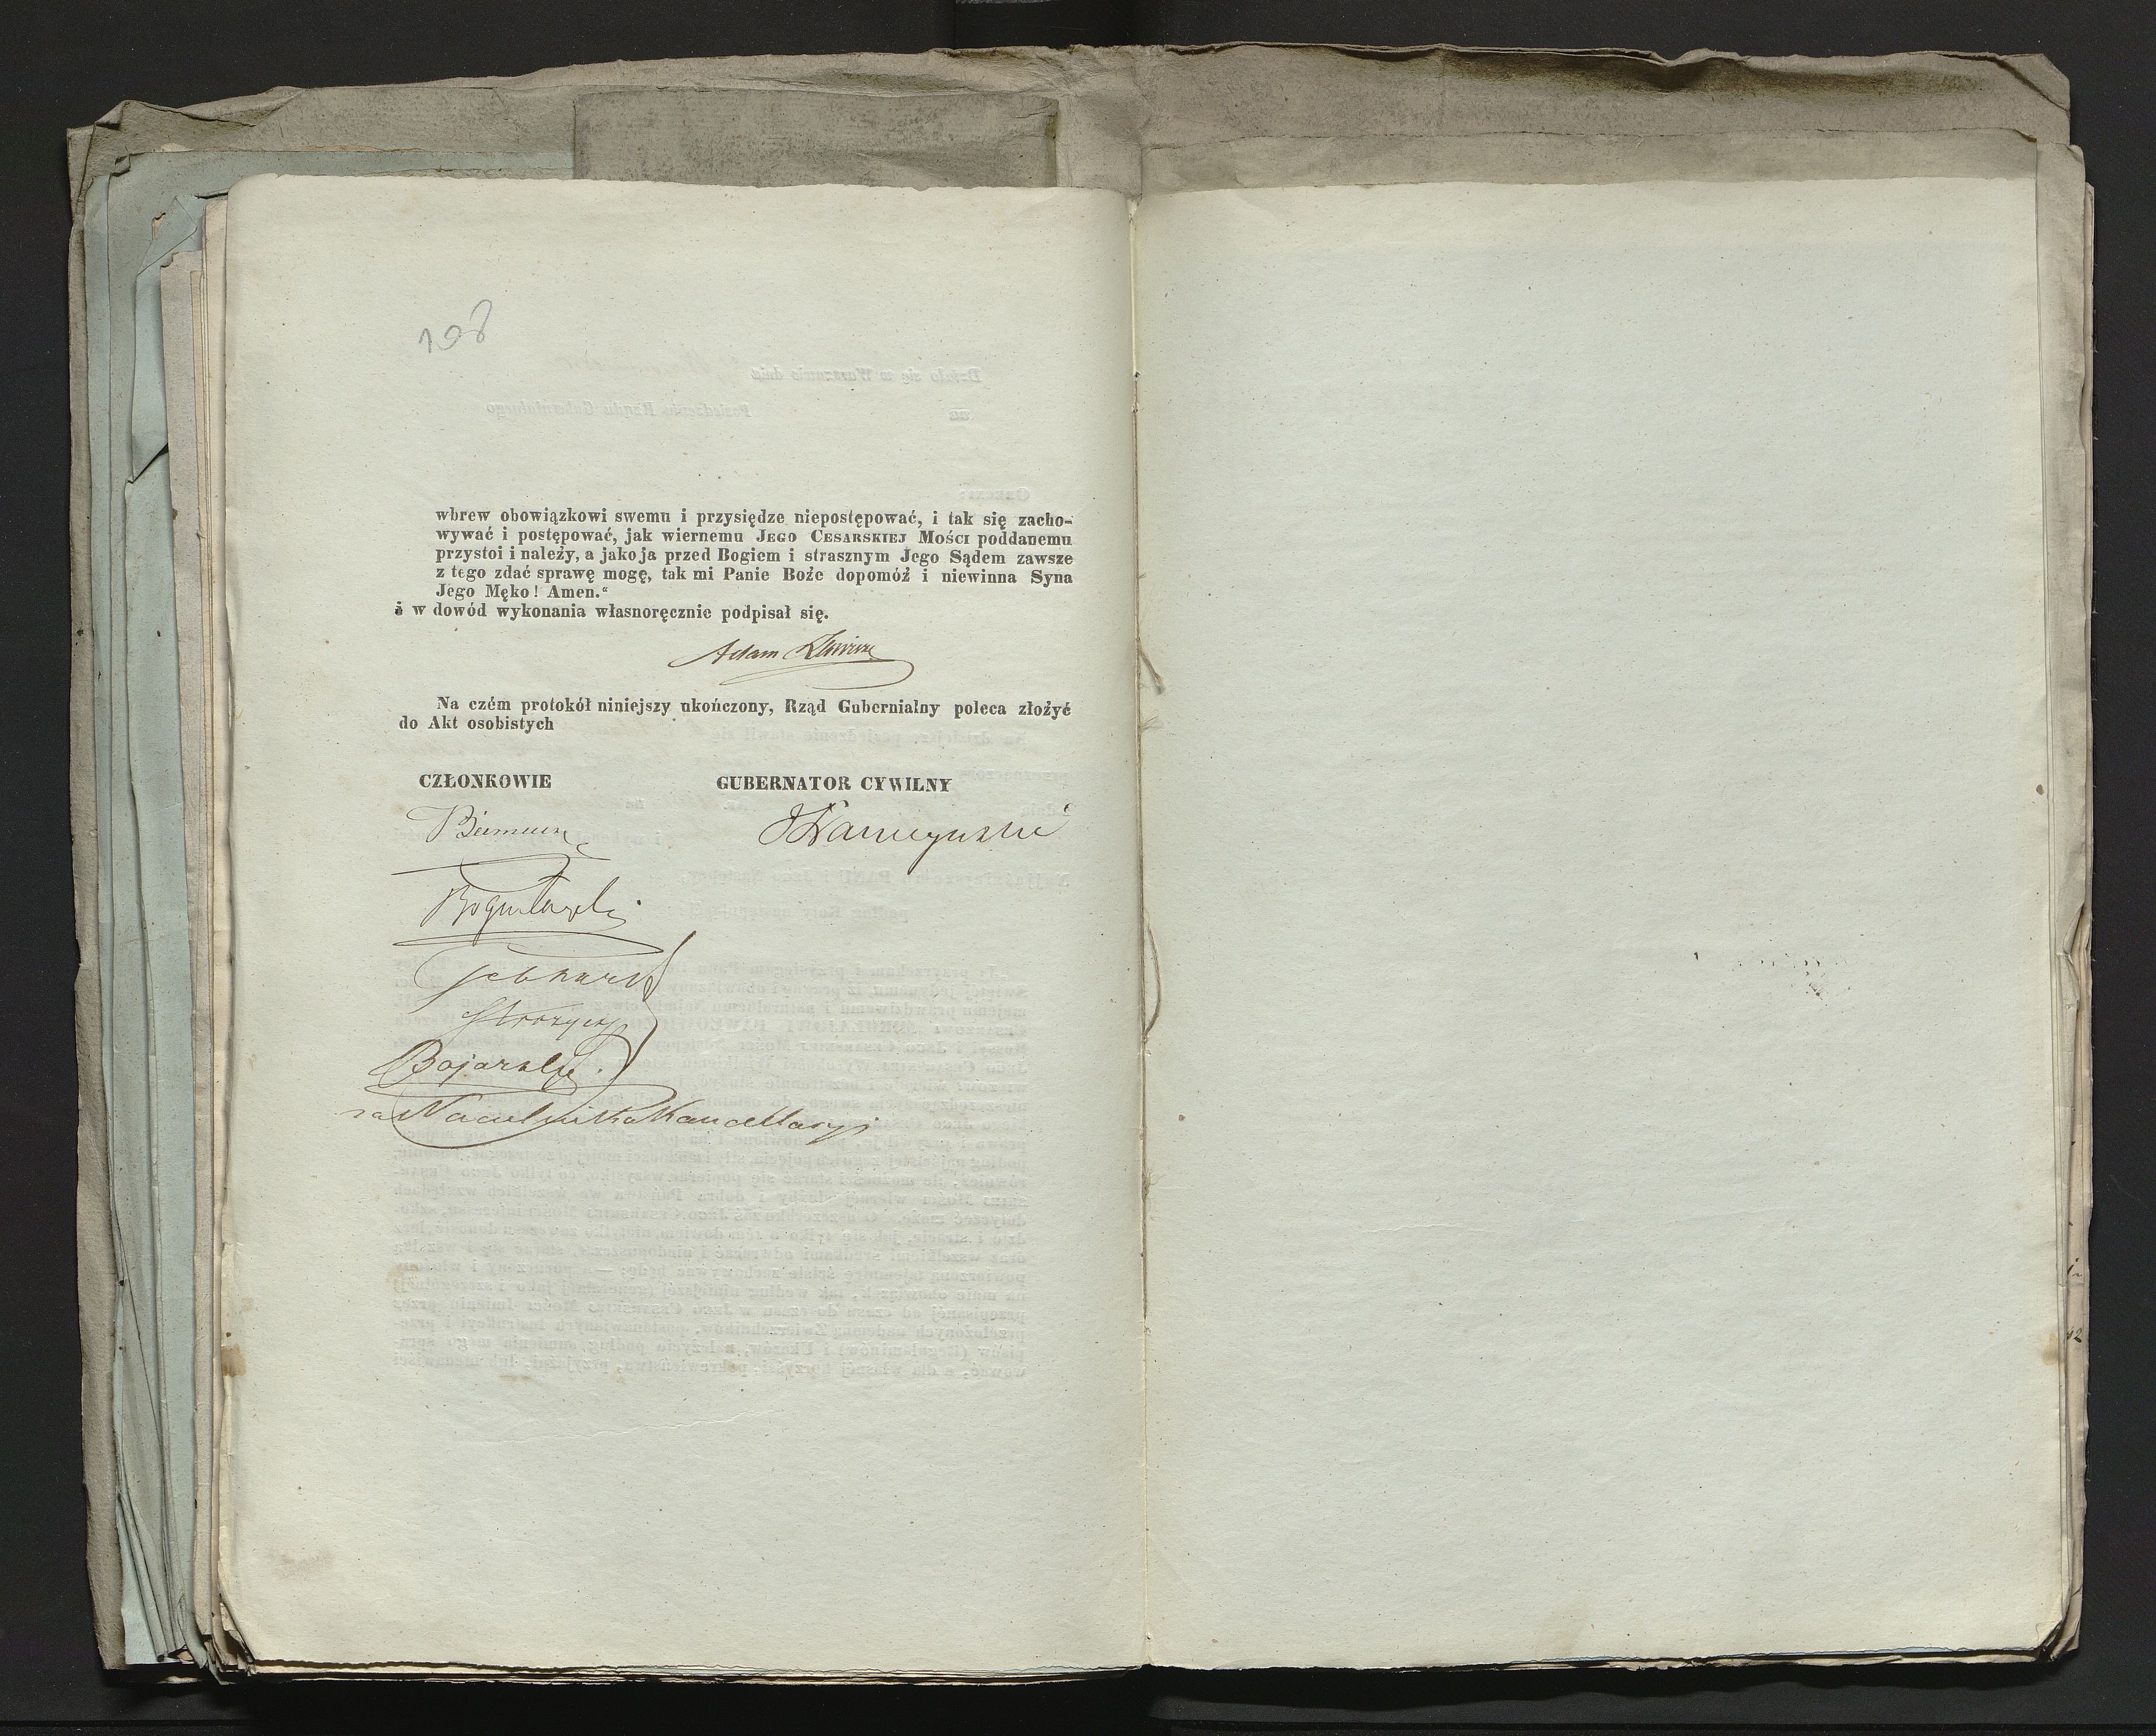 108
wbrew obowiązkowi swemu i przysiędze niepostępować, i tak się zacho-
wywać i postępować, jak wiernemu JEGO CESARSKIEJ Mości poddanemu
przystoi i należy, a jako ja przed Bogiem i strasznym Jego Sądem zawsze
z tego zdać sprawę mogę, tak mi Panie Boże dopomóż i niewinna Syna
Jego Męko! Amen.“
i w dowód wykonania własnoręcznie podpisał się.
Adam
Na czém protokół niniejszy ukończony, Rząd Gubernialny poleca złożyć
do Akt osobistych
CZŁONKOWIE GUBERNATOR CYWILNY
Bogusławski
Gebhardt
Bojarski
za Naczelnika Kancellaryi